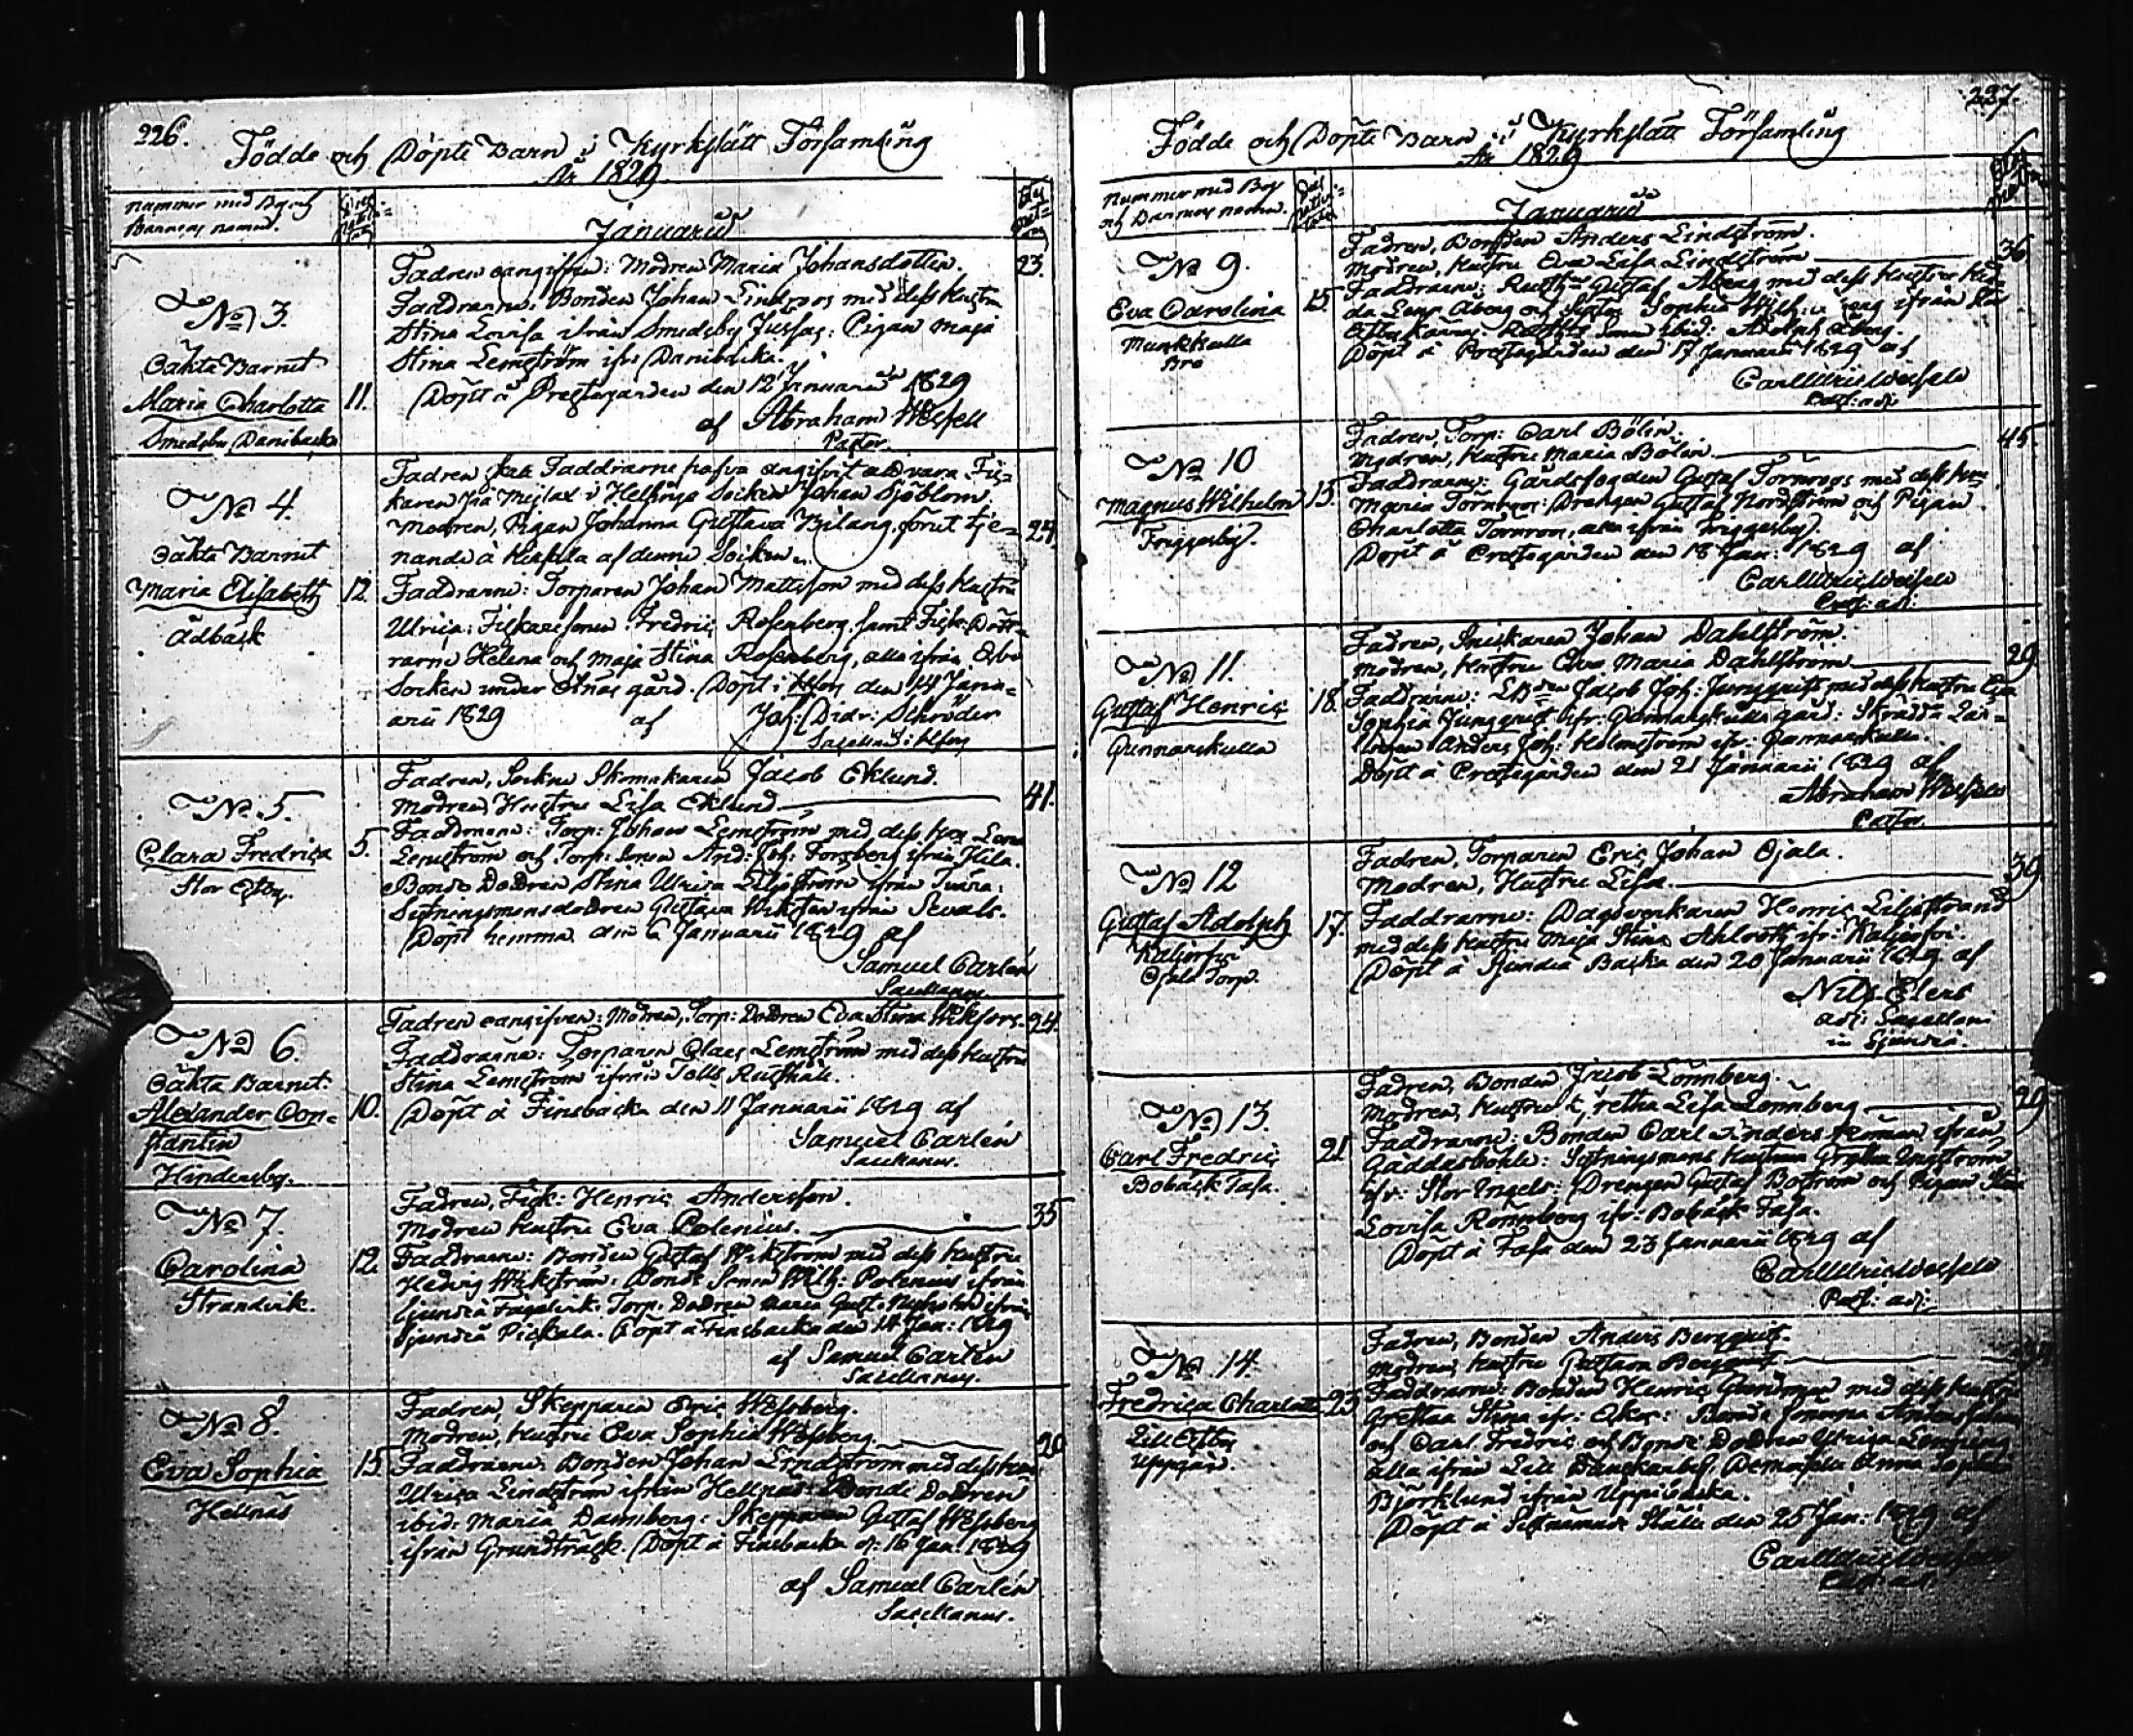 226.
Födde och Döpte Barn i Kyrkslätt Församling
År 1829.
Nummer med By och
Barnens namn.
Januarii
Fadren oangifven: Modren Maria Johansdotter. 23.
Faddrarne: Bonden Johan Lindroos med dess hustru
Stina Lovisa ifrån Smedsby Jussas: Pigan Maja
Stina Lemström ifr: Danibacka.
Döpt å Prestegården den 12 Januarii 1829
af Abraham Wesell
Pastor.
No 3.
Oäkta Barnet
Maria Charlotta 11.
Smedsby Danibacka
Fadren skall Faddrarne hafva angifvit at vara Fis-
karen från i Helsinge Socken Johan Sjöblom.
Modren, Pigan Johanna Gustava Bilang, förut tje- 24.
nande å af denne Socken.
Faddrarne: Torparen Johan Mattsson med dess Hustru
Ulrica: Fiskaresonen Fredric Rosenberg, samt Fisk: Dött-
rarne Helena och Maja Stina Rosenberg, alla ifrån Esbo
Socken under Esnäs gård. Döpt i Hfors den 14 Janu-
arii 1829 af Joh: Didr: Schröder
Sacellan: i Hfors
No 4.
Oäkta Barnet
Maria Elisabeth 12.
Ådbäck
Fadren, Socken Skomakaren Jacob Eklund.
Modren Hustru Lisa Eklund. 41.
Faddrarne: Torp: Johan Lemström med dess hu: Lena
Lemström och Torp: Sonen And: Joh: Forsberg ifrån Kila.
Bonde Dottren Stina Ulrica Liljeström ifrån Tvära:
Sytningsmansdottren Gustava Wikstén ifrån Sevals.
Döpt hemma den 6 Januarii 1829 af
Samuel Carlén
Sacellanus.
No 5.
Clara Fredrica 5.
Stor Estby.
Fadren oangifven: Modren, Torp: Dottren Eva Stina Wikfors. 24.
Faddrarne: Torparen Claes Lemström med dess hustru
Stina Lemström ifrån Tolls Rusthåll.
Döpt å Finsbacka den 11 Januarii 1829 af
Samuel Carlén
Sacellanus.
No 6.
Oäkta Barnet:
Alexander Con- 10.
stantin
Hindersby.
Fadren, Fisk: Henric Andersson.
Modren hustru Eva Polenius. 35
Faddrarne: Bonden Gustaf Wikström med dess hustru
Hedvig Wikström: Bonde Sonen Wilh: Polenius ifrån
Sjundeå Fagervik: Torp: Dottren Maria Gust: Nyholm ifrån
Sjundeå Pickala. Döpt å Finsbacka den 14 Jan: 1829
af Samuel Carlén
Sacellanus.
No 7.
Carolina 12.
Strandvik.
Fadren, Skepparen Eric Wesberg.
Modren, hustru Eva Sophia Wesberg. 20
Faddrarne: Bonden Johan Lindström med dess hu:
Ulrica Lindström ifrån Hellnäs: Bonde Dottren
ibid: Maria Dannberg: Skepparen Gustaf Wesberg
ifrån Grundträsk. Döpt å Finsbacka d: 16 Jan: 1829
af Samuel Carlén
Sacellanus.
No 8.
Eva Sophia 15.
Hellnäs
227.
Födde och Döpte Barn i Kyrkslätt Församling
År 1829
Nummer med By
och Barnens namn.
Januarii
Fadren, Bonden Anders Lindström. 36
Modren, hustru Eva Lisa Lindström
Faddrarne: Rusth: Gustaf Åberg med dess hustru
Lena Åberg och Syster Sophia ifrån
ibid: Adolph Åberg.
Döpt å Prestegården den 17 Januarii 1829 af
Carl Ulric Weisell
Past: adj:
No 9.
Eva Carolina 15.
Munkkulla
Bro
Fadren, Torp: Carl Bölin. 45.
Modren, hustru Maria Bölin.
Faddrarne: Gårdsfogden Gustaf Törnroos med dess hu:
Maria Törnroos: Drengen Gustaf Nordström och Pigan
Charlotta Törnroos, alla ifrån Friggesby.
Döpt å Prestegården den 18 Jan: 1829 af
Carl Ulric Weisell
Past: adj:
No 10
Magnus Wilhelm 15.
Friggesby.
Fadren, Snickaren Johan Dahlström.
Modren, hustru Eva Maria Dahlström 29.
Faddrarne: Jacob Joh: Jungquist med dess hustru Eva
Sophia Jungquist ifr: Gunnarskulla gård: Skräddare Lär-
lingen Anders Joh: Holmström ifr: Gunnarskulla.
Döpt å Prestegården den 21 Januarii 1829 af
Abraham Wesell
Pastor.
No 11.
Gustaf Henric 18.
Gunnarskulla
Fadren, Torparen Eric Johan Ojala.
Modren, Hustru Lisa. 39
Faddrarne: Dagsverkaren Henric Liljestrand
med dess hustru Maja Stina Ahlroth ifr: Kaljorfvi.
Döpt å Sjundeå Backa den 20 Januarii 1829 af
Nils Elers
adj: Sacellani
in Sjundeå.
No 12
Gustaf Adolph 17.
Kaljorfvi
Ojala Torp.
Fadren, Bonden Jacob Lönnberg.
Modren, hustru Gretha Lisa Lönnberg 29
Faddrarne: Bonden Carl Anders Roman ifrån
Gäddasböhle: Sytningsmans hustrun Gretha Engström
ifr: Stor Engels: Drengen Gustaf Boström och Pigan Stina
Lovisa Rönnberg ifr: Bobäck Fasa.
Döpt å Fasa den 23 Januarii 1829 af
Carl Ulric Weisell
Past: adj:
No 13.
Carl Fredric 21
Bobäck Fasa.
Fadren, Bonden Anders Bergquist.
Modren, hustru Gustava Bergquist
Faddrarne: Bonden Henric Gundman med dess hustru
Grettaa Stina ifr:
och Carl Fredric och Bonde Dottren Ulrica
alla ifrån Lill Danskarby: Demoiselle Anna Sophia
Björklund ifrån Uppibacka.
Döpt å Sistnämnde Ställe den 25 Jan: 1829 af
Carl Ulric Weisell
Past: adj:
No 14.
Fredrica Charlotta 23
Lill Estby
Uppgård.